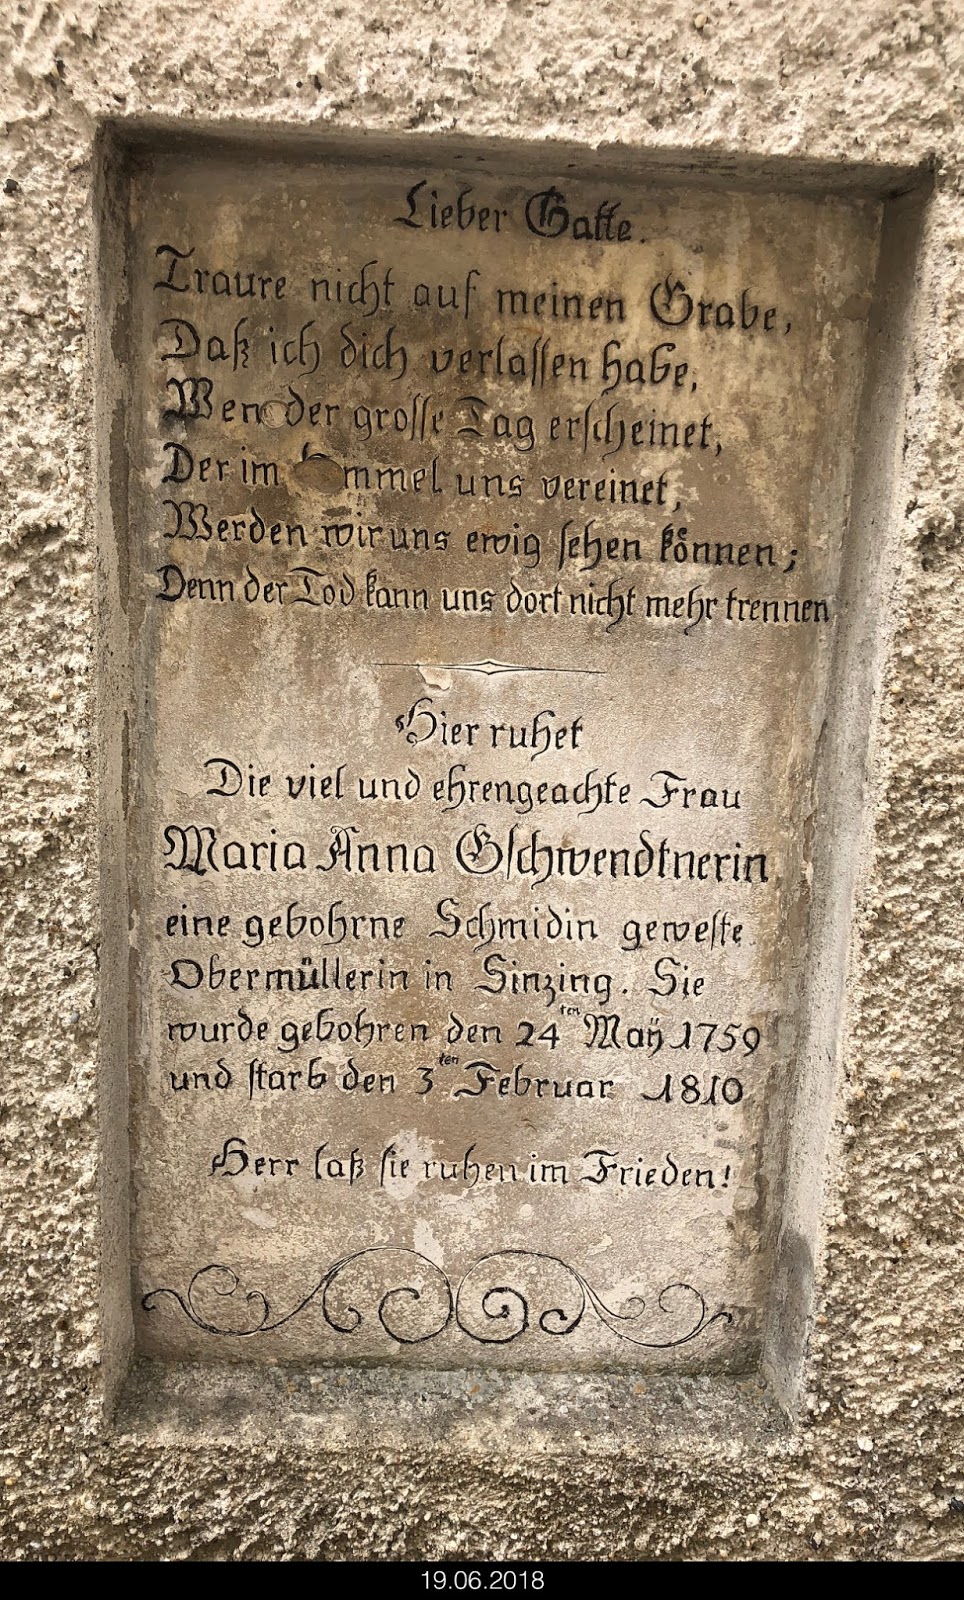 Lieber Gatte.
Traure nicht auf meinen Grabe,
Daß ich dich verlassen habe,
Wen der grosse Tag erscheinet,
Der im mmel uns vereinet,
Werden wir uns ewig sehen können;
Denn der Tod kann uns dort nicht mehr trennen
Hier ruhet
Die viel und ehrengeachte Frau
Maria Anna Gschwendtnerin
eine gebohrne Schmidin geweste
Obermüllerin in Sinzing. Sie
wurde gebohren den 24ten Maÿ 1759
und starb den 3ten Februar 1810
Herr laß sie ruhen im Frieden!
19.06.2018